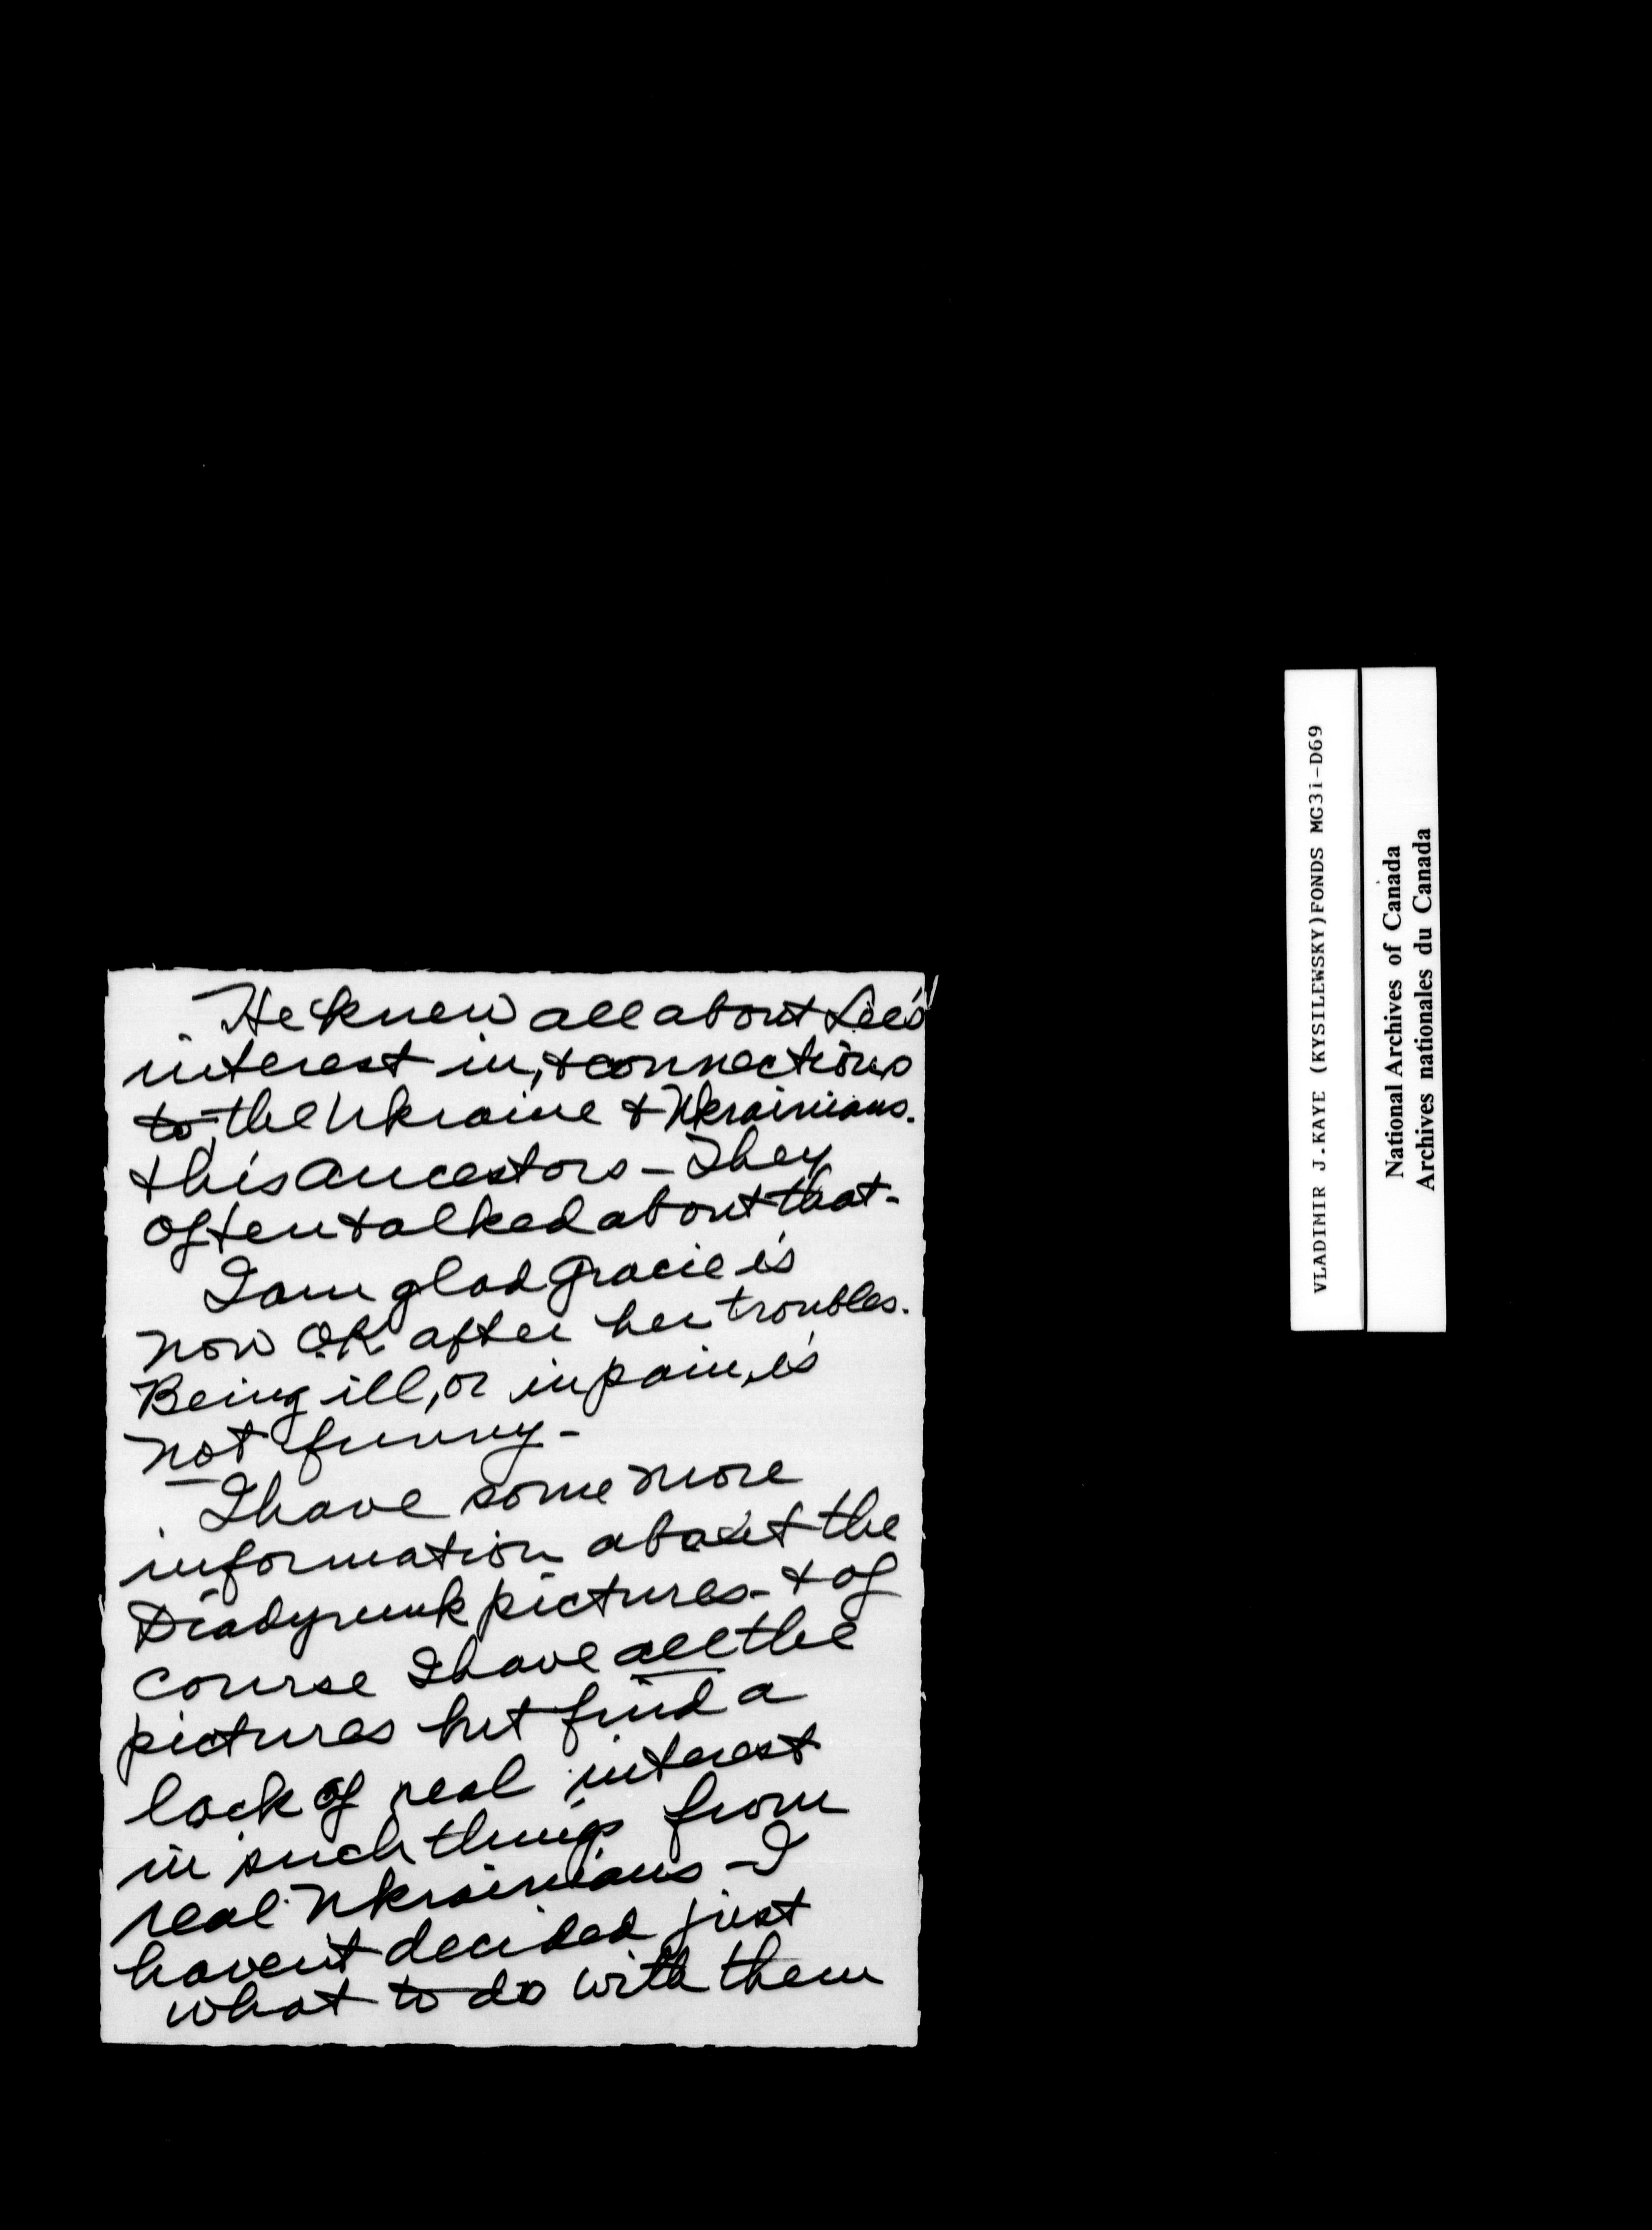 He knew all about Lee's
interest in, & connections
to, the Ukraine & Ukrainians.
& his ancestors - They
often talked about that -
I am glad Gracie is
now O.K. after her troubles.
Being ill, or in pain, is
not funny -
I have some more
information about the
Diadyniuk pictures - & of
course I have all the
pictures but find a
lack of real interest
in such things from
real Ukrainians - I
haven't decided just
what to do with them
VLADIMIR J.KAYE (KYSILEWSKY)FONDS MG31-D69
National Archives of Canada
Archives nationales du Canada